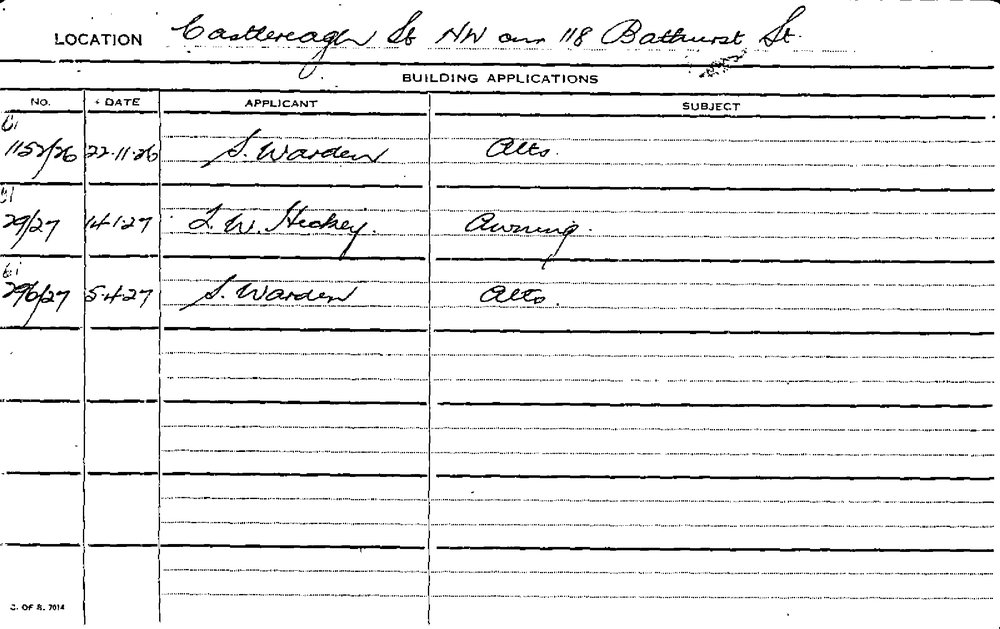 LOCATION Castlereagh St NW cnr 118 Bathurst St.
BUILDING APPLICATIONS
NO. DATE APPLICANT SUBJECT
61
1152/26 22.11.26 S. Warden Alts.
61
29/27 14.1.27 L. W. Hickey. Awning.
61
296/27 5.4.27 S. Warden Alts.
C. OF S. 7014